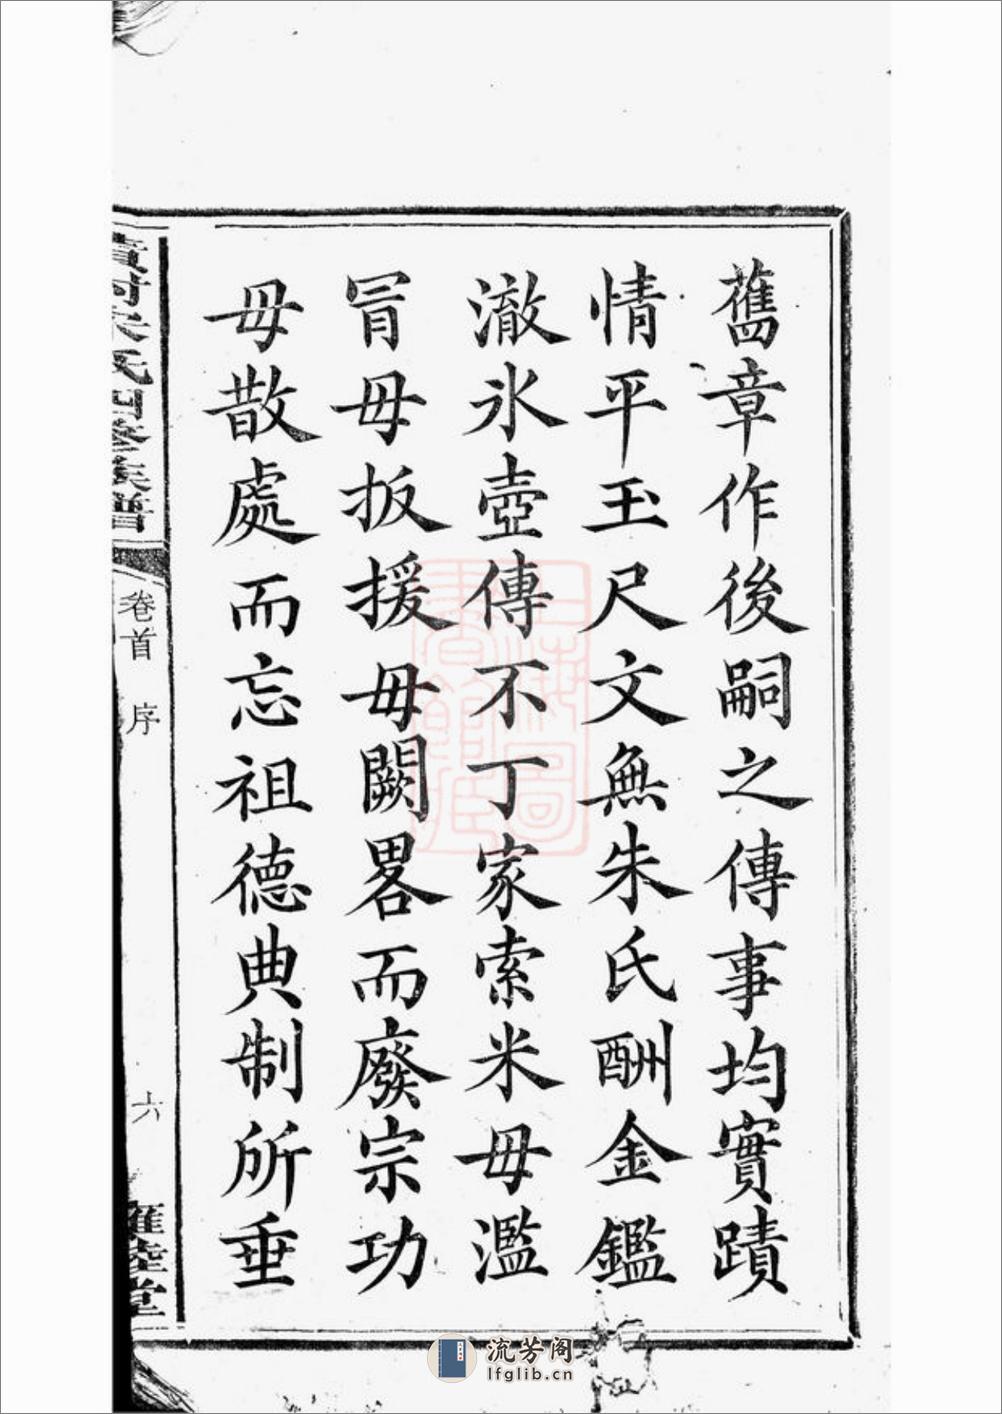 舊章作後嗣之傳事均實蹟
情平玉尺文無朱氏酬金鑑
澈氷壺傳不丁家索米毋濫
冐毋扳援毋闕畧而廢宗功
毋散處而忘祖德典制所垂
宋氏四修族譜
卷首
序
六
雍睦堂
上海圖書館藏
流芳阁
lfglib.cn